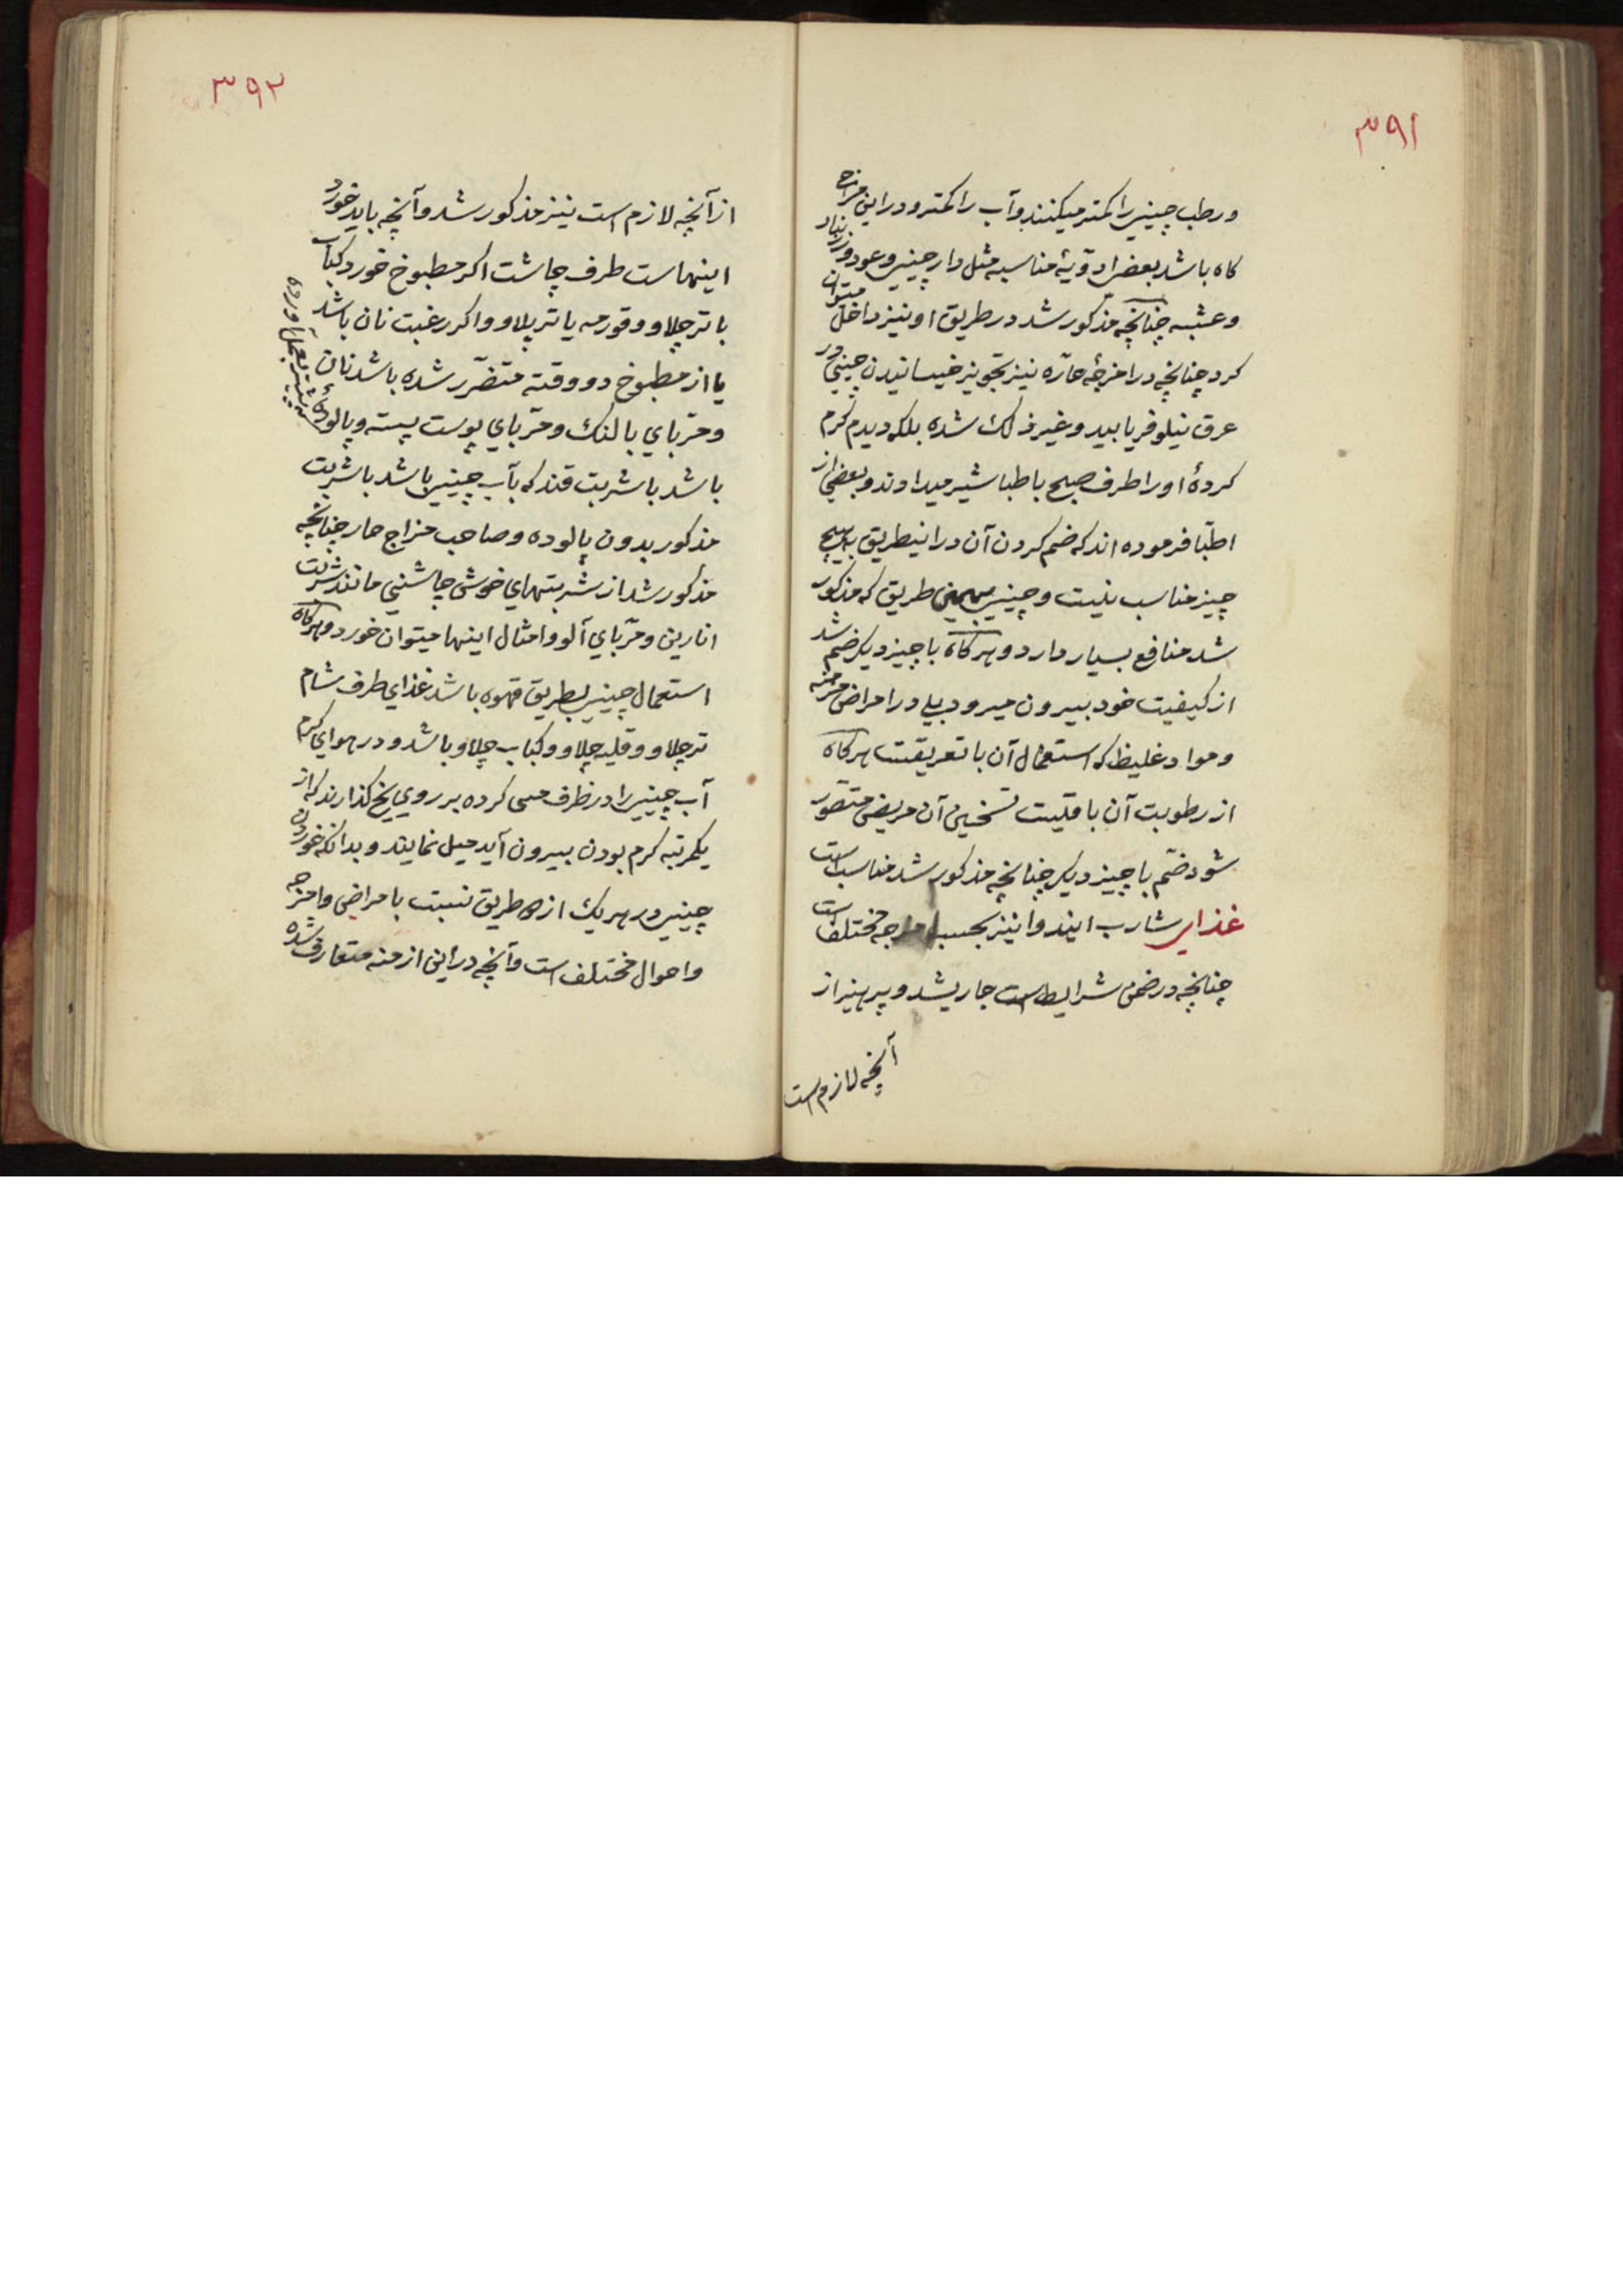 ۳۹۱
ورطب چینی را کمتر میکنند و آب را کمتر و در این مزاج
کاه باشد بعضی ادویهٔ مناسبه مثل دارچینی و عود و زرنباد
و عشبه چنانچه مذکور شد در طریق او نیز داخل میتوان
کرد چنانچه در امزجهٔ حارّه نیز تجویز خیسانیدن چینی در
عرق نیلوفر یا بید و غیر ذلک شده بلکه دیدم کرم
کردهٔ او را طرف صبح با طباشیر میدادند و بعضی از
اطبّا فرموده اند که ضم کردن آن در اینطریق با هیچ
چیز مناسب نیست و چینی بهمین طریق که مذکور
شد منافع بسیار دارد و هرکاه با چیز دیکر ضم شد
از کیفیت خود بیرون میرود بلی در امراض مزمنه
و مواد غلیظ که استعمال آن باتعریقست هرکاه
از رطوبت آن با قلیت تسخین آن مریض متضرر
شود ضمّ با چیز دیکر چنانچه مذکور شد مناسب است
غذای شارب ایندوا نیز بحسب امزجه مختلف است
چنانچه در ضمن شرایط است جاریشد و پرهیز از
آنچه لازم است
۳۹۲
از آنچه لازم است نیز مذکور شد و آنچه باید خورد
اینهاست طرف چاشت اکر مطبوخ خورد کباب
با تر چلاو و قورمه یا تر پلاو و اکر رغبت نان باشد
یا از مطبوخ دو وقته متضرّر شده باشد نان
و مربّای بالنک و مربّای پوست پسته و پالودهٔ
باشد با شربت قند که بآب چینی باشد یا شربت
مذکور بدون پالوده و صاحب مزاج حار چنانچه
مذکور شد از شربتهای خوش چاشنی مانند شربت
انارین و مربّای آلو و امثال اینها میتوان خورد و هرکاه
استعمال چینی بطریق قهوه باشد غذای طرف شام
تر چلاو و قلیه چلاو و کباب چلاو باشد و در هوای کرم
آب چینی را در ظرف مسی کرده بر روی یخ کذارند که از
یکمرتبه کرم بودن بیرون آید میل نمایند و بدانکه خوردن
چینی در هریک از طریق نسبت بامراض و امزجه
و احوال مختلف است و آنچه در این ازمنه متعارف شده